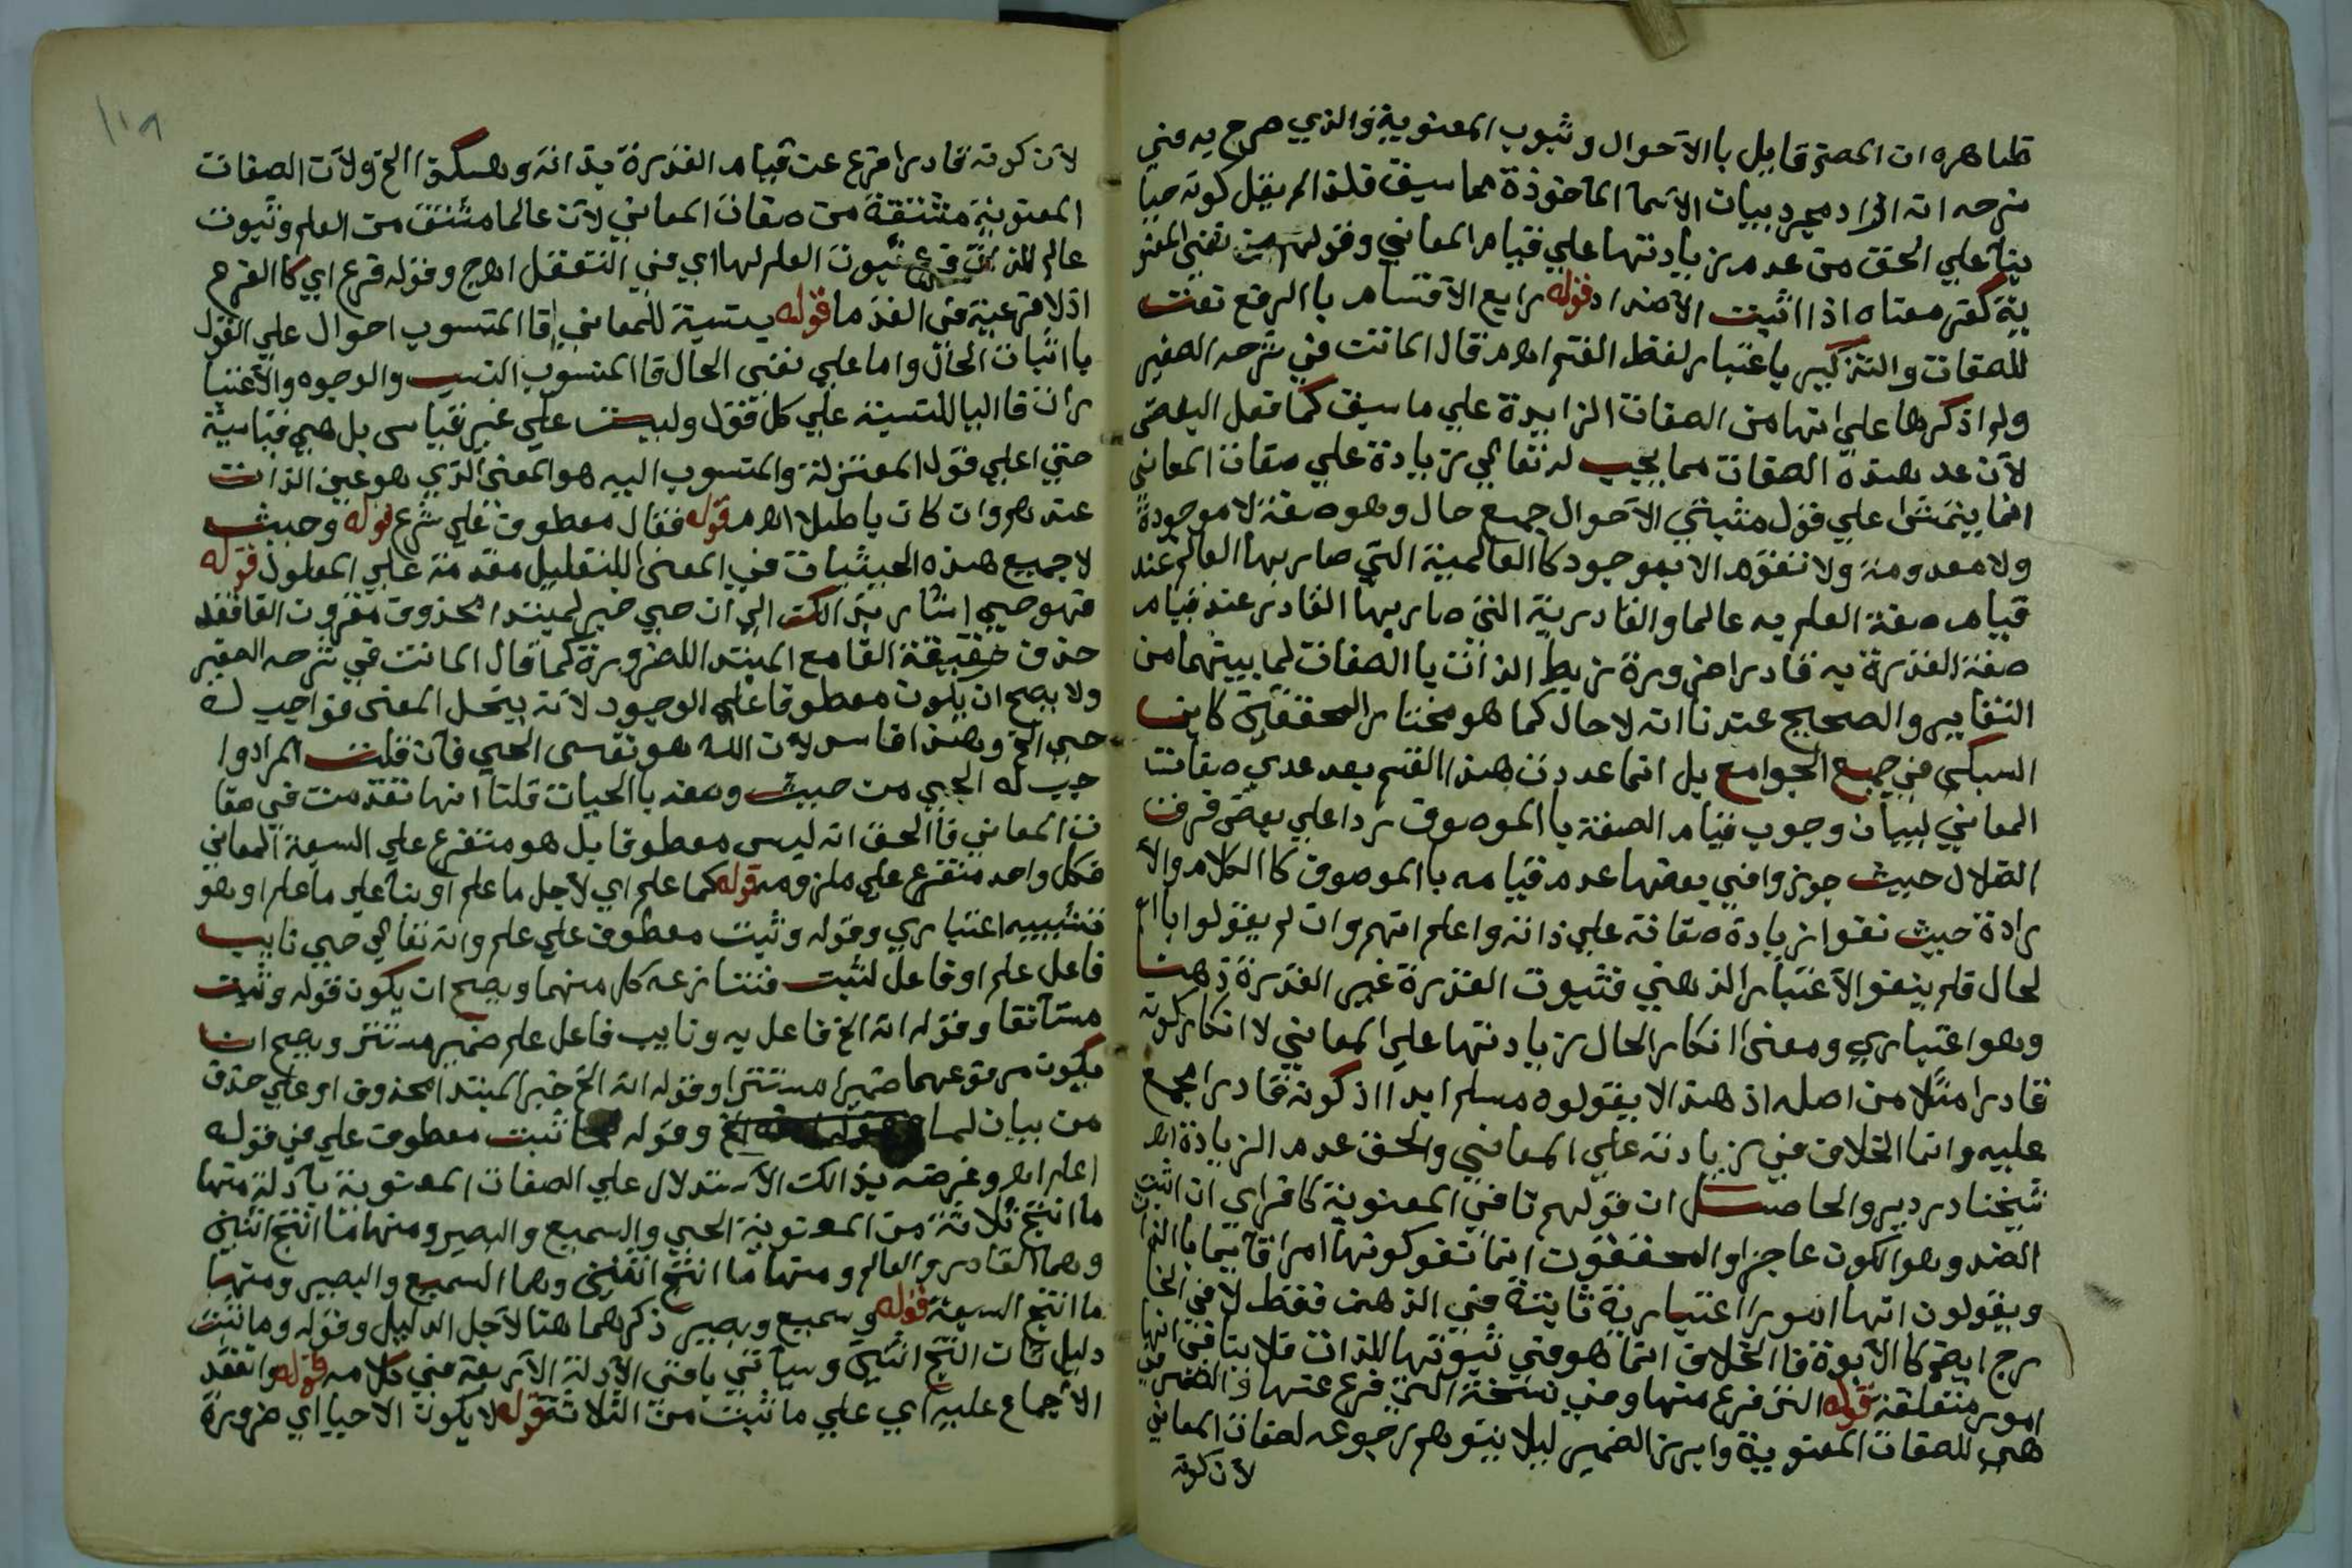 ظاهره ان المصنف قايل باالاحوال وثبوب المعنوية والذي صرح به في
شرحه انه اراد مجرد بيان الاسما الماخوذة مما سيق فلذا لم يقل كونه حيا
بنآ علي الحق من عدم زيادتها علي قيام المعاني وقولهم من نفي المعنو
ية كفر معناه اذا اثبت الاضداد قوله رابع الاقسام باالرفع نعت
للصفات والتذكير باعتبار لفظ القسم اهـ قال الماتن في شرحه الصغير
ولم اذكرها علي انها من الصفات الزايدة علي ما سيق كما فعل البعض
لان عد هذه الصفات مما يجب له تعالي زيادة علي صفات المعاني
انما يتمشى علي قول مثبتي الاحوال جمع حال وهو صفة لا موجودة
ولا معدومة ولا تقوم الا بموجود كا العالمية التي صار بها العالم عند
قيام صفة العلم به عالما والقادرية التي صار بها القادر عند قيام
صفة القدرة به قادرا ضرورة تربط الذات با الصفات لما بينهما من
التغاير والصحيح عندنا انه لا حال كما هو مختار المحققين كابن
السبكي في جمع الجوامع بل انما عددت هذا القسم بعد عدي صفات
المعاني لبيان وجوب قيام الصفة با الموصوف ردا علي بعض فرق
الضلال حيث جوزوا في بعضها عدم قيامه با الموصوف كا الكلام والا
رادة حيث نفوا زيادة صفاته علي ذاته واعلم انهم وان لم يقولوا با
لحال فلم ينفو الاعتبار الذهني فثبوت القدرة غير القدرة ذهنا
وهو اعتباري ومعنى انكار الحال زيادتها علي المعاني لا انكار كونه
قادرا مثلا من اصله اذ هذا لا يقولوه مسلم ابدا اذ كونه قادرا مجمع
عليه وانما الخلاف في زيادته علي المعاني والحق عدم الزيادة اهـ
شيخنا دردير والحاصل ان قولهم نافي المعنوية كافر اي ان اثبت
الضد وهو الكون عاجزا والمحققون انما نفو كونها امرا قايما با الذا
ويقولون انها امورا اعتبارية ثابتة في الذهن فقط لا في الخا
رج ايضا كا الابوة فا الخلاف انما هو في ثبوتها للذات فلا ينافي انها
امور متعلقة قوله التي فرع منها وفي نسخة التي فرع عنها
هي للصفات المعنوية وابرز الضمير ليلا يتوهم رجوعه لصفات المعاني
لان كونه
لان كونه قادرا فرع عن قيام القدرة بذاته وهكذا الخ ولان الصفات
المعنوية مشتقة من صفات المعاني لان عالما مشتق من العلم وثبوت
عالم للذات فرع ثبوت العلم لها اي في التعقل اهـ ج وقوله فرع اي كا الفرع
اذ لا فرعية في القدما قوله بنسبة للمعاني فا المنسوب احوال علي القول
با اثبات الحال واما علي نفي الحال فا المنسوب النسب والوجوه والاعتبا
رات فا اليا للنسبة علي كل قول وليست علي غير قياس بل هي قياسية
حتي اعلي قول المعتزلة والمنسوب اليه هو المعنى الذي هو عين الذات
عندهم وان كان باطلا اهـ قوله فقال معطوف علي شرع قوله وحيث
لا جميع هذه الحيثيات في المعنى للتعليل مقدمة علي المعلول قوله
فهو حي اشار بذالك الي ان حي خبر لمبتدا محذوف مقرون القا فقد
حذف حقيقة القا مع المبتدا للضرورة كما قال الماتن في شرحه الصغير
ولا يصح ان يكون معطوفا علي الوجود لانه ينحل المعنى فواجب له
حي الخ وهذا فاسد لان الله هو نفسى الحي فان قلت المراد وا
جب له الحيي من حيث وصفه باالحيات قلنا انها تقدمت في صفا
ت المعاني فا الحق انه ليس معطوفا بل هو متفرع علي السبعة المعاني
فكل واحد متفرع علي ملزومه قوله كما علم اي لاجل ما علم او بنا علي ما علم او هو
تشبيه اعتباري وقوله وثبت معطوف علي علم وانه تعالي حي نايب
فاعل علم او فاعل لثبت فتنازعه كل منهما ويصح ان يكون قوله وثبت
مستانفا وقوله انه الخ فاعل به ونايب فاعل علم ضمير مستتر ويصح ان
يكون مرفوعهما ضميرا مستترا وقوله انه الخ خبر لمبتدا محذوف او علي حذف
من بيان لما وقوله ثبت معطوف علي في قوله
اعلم اهـ وغرضه بذالك الاستدلال علي الصفات المعنوية بادلة منها
ما انتج ثلاثة من المعنوية الحي والسميع والبصير ومنها ما انتج اثنين
وهما القادر والعالم ومنها ما انتج اثنين وهما السميع والبصير ومنها
ما انتج السبعة قوله وسميع وبصير ذكرهما هنا لاجل الدليل وقوله وما ثبت
دليل ثان انتج اثنين وسياتي باقي الادلة الاربعة في كلامه قوله وانعقد
الاجماع عليه اي علي ما ثبت من الثلاثة قوله لا يكون الا حيا اي ضرورة